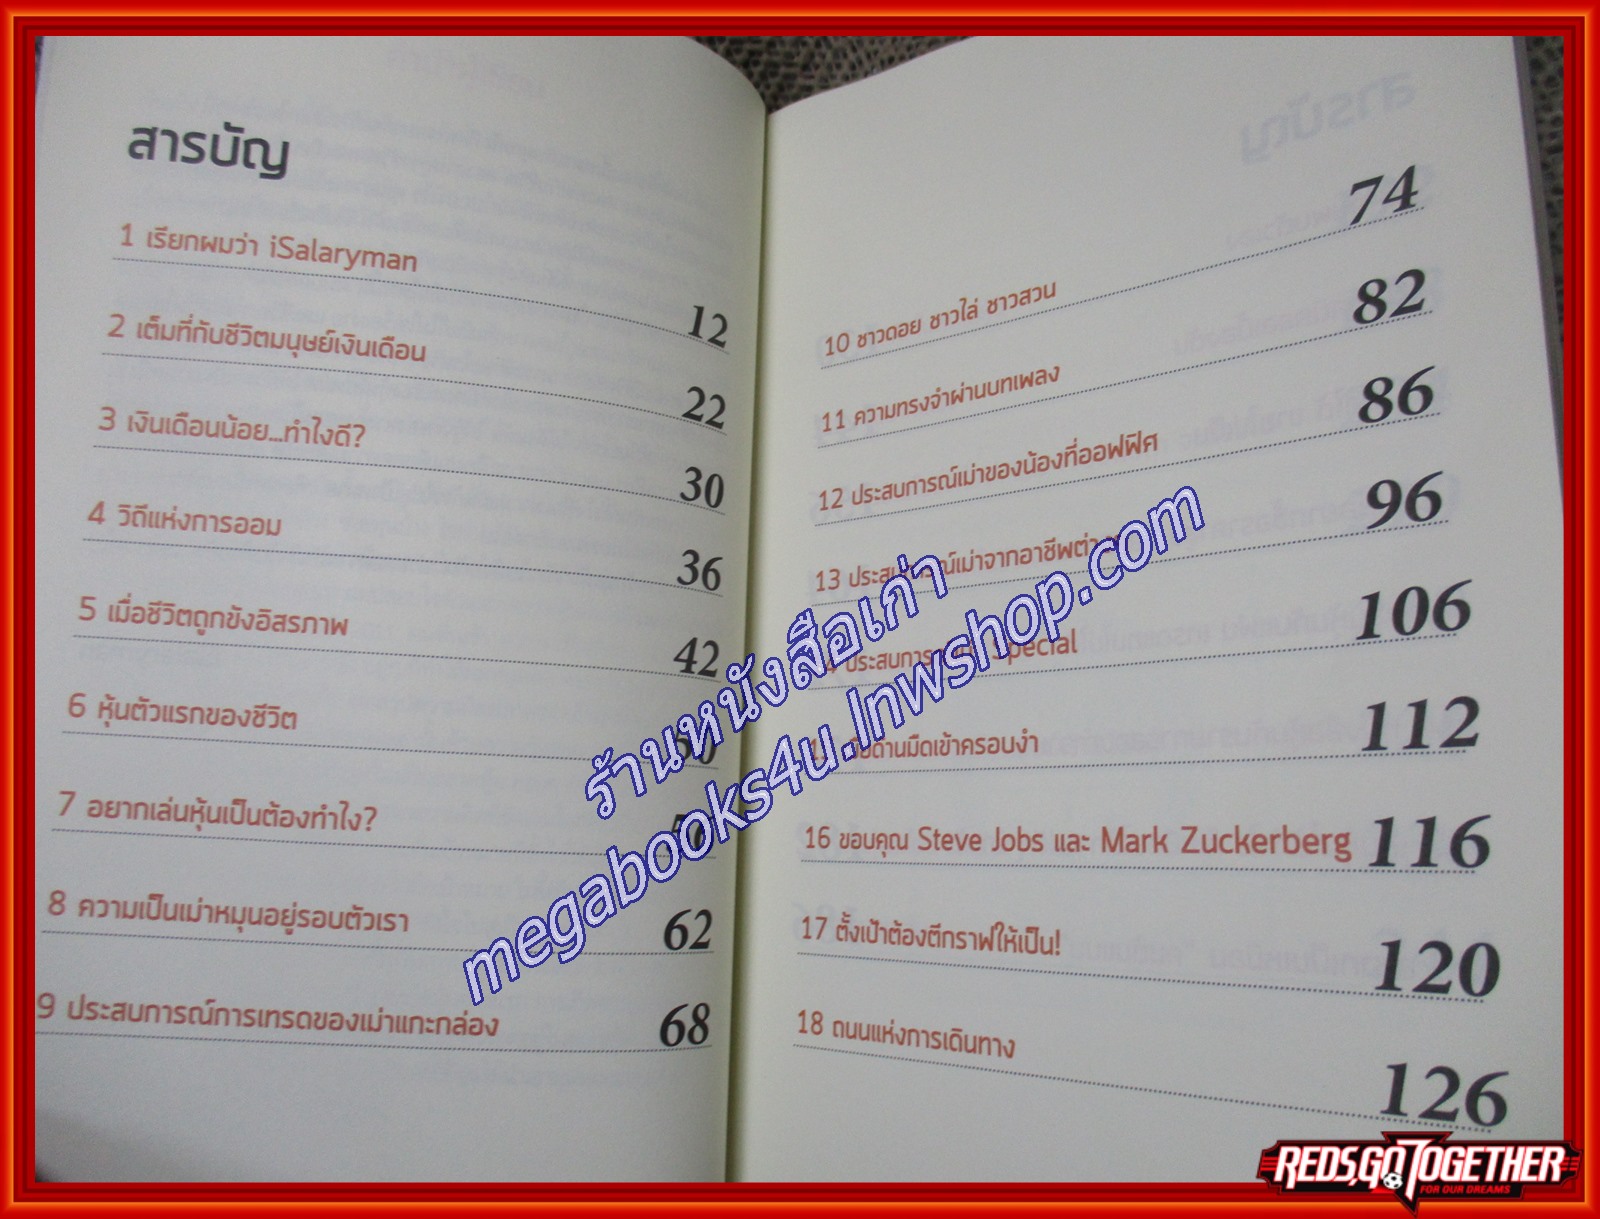 สารบัญ
1 เรียกผมว่า iSalaryman 12
2 เต็มที่กับชีวิตมนุษย์เงินเดือน 22
3 เงินเดือนน้อย...ทำไงดี? 30
4 วิถีแห่งการออม 36
5 เมื่อชีวิตถูกขังอิสรภาพ 42
6 หุ้นตัวแรกของชีวิต 50
7 อยากเล่นหุ้นเป็นต้องทำไง?
8 ความเป็นเม่าหมุนอยู่รอบตัวเรา 62
9 ประสบการณ์การเทรดของเม่าแกะกล่อง 68
10 ชาวดอย ชาวไล่ ชาวสวน 74
11 ความทรงจำผ่านบทเพลง 82
12 ประสบการณ์เม่าของน้องที่ออฟฟิศ 86
13 ประสบการณ์เม่าจากอาชีพต่าง 96
ประสบการ Special 106
ด้านมืดเข้าครอบงำ 112
16 ขอบคุณ Steve Jobs และ Mark Zuckerberg 116
17 ตั้งเป้าต้องตีกราฟให้เป็น! 120
18 ถนนแห่งการเดินทาง 126
ร้านหนังสือเก่า
megabooks4u.lnwshop.com
REDS,GO TOGETHER
FOR OUR DREAMS